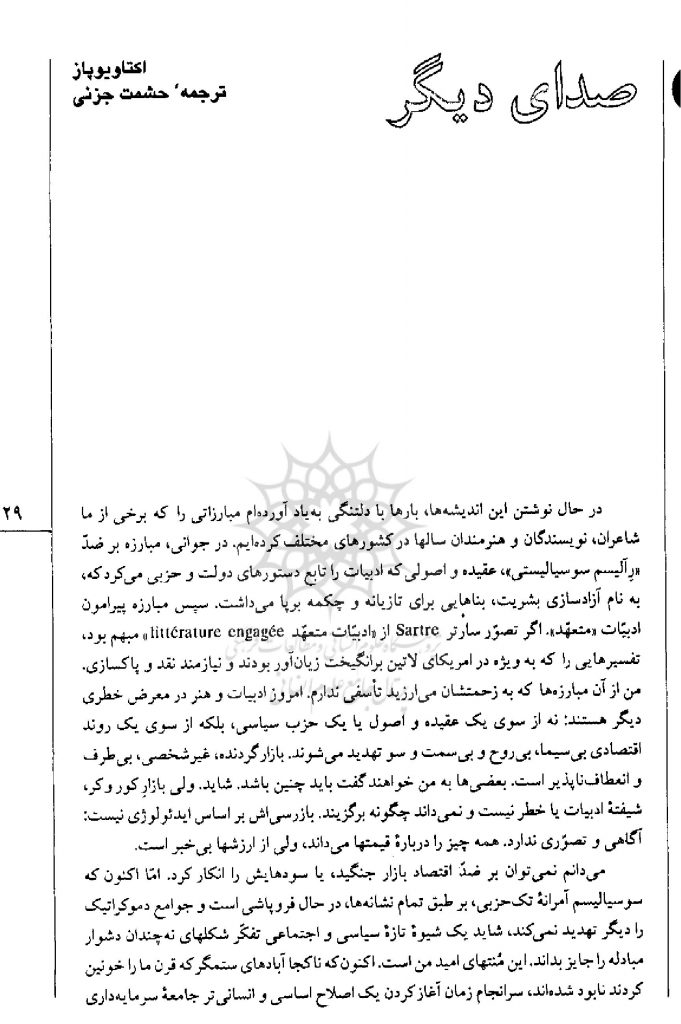 صدای دیگر
اکتاویوپاز
ترجمهٔ حشمت جزنی
در حال نوشتن این اندیشه‌ها، بارها با دلتنگی به‌یاد آورده‌ام مبارزاتی را که برخی از ما
شاعران، نویسندگان و هنرمندان سالها در کشورهای مختلف کرده‌ایم. در جوانی، مبارزه بر ضدّ
«رِآلیسم سوسیالیستی»، عقیده و اصولی که ادبیات را تابع دستورهای دولت و حزبی می‌کرد که،
به نام آزادسازی بشریت، بناهایی برای تازیانه و چکمه برپا می‌داشت. سپس مبارزه پیرامون
ادبیّات «متعهّد». اگر تصوّر سارْتر Sartre از «ادبیّات متعهّد littérature engagée» مبهم بود،
تفسرهایی را که به ویژه در امریکای لاتین برانگیخت زیان‌آور بودند و نیازمند نقد و پاکسازی.
من از آن مبارزه‌ها که به زحمتشان می‌ارزید تأسفی ندارم. امروز ادبیات و هنر در معرض خطری
دیگر هستند: نه از سوی یک عقیده و اصول یا یک حزب سیاسی، بلکه از سوی یک روند
اقتصادی بی‌سیما، بی‌روح و بی‌سمت و سو تهدید می‌شوند. بازار گردنده، غیرشخصی، بی‌طرف
و انعطاف‌ناپذیر است. بعضی‌ها به من خواهند گفت باید چنین باشد. شاید. ولی بازارِ کور و کر،
شیفتهٔ ادبیات یا خطر نیست و نمی‌داند چگونه برگزیند. بازرسی‌اش بر اساس ایدئولوژی نیست:
آگاهی و تصوّری ندارد. همه چیز را دربارهٔ قیمتها می‌داند، ولی از ارزشها بی‌خبر است.
می‌دانم نمی‌توان بر ضدّ اقتصاد بازار جنگید، یا سودهایش را انکار کرد. امّا اکنون که
سوسیالیسم آمرانهٔ تک‌حزبی، بر طبق تمام نشانه‌ها، در حال فروپاشی است و جوامع دموکراتیک
را دیگر تهدید نمی‌کند، شاید یک شیوهٔ تازهٔ سیاسی و اجتماعی تفکّر شکلهای نه‌چندان دشوار
مبادله را جایز بداند. این مُنتهای امید من است. اکنون‌که ناکجا آبادهای ستمگر که قرن ما را خونین
کردند نابود شده‌اند، سرانجام زمان آغاز کردن یک اصلاح اساسی و انسانی‌تر جامعهٔ سرمایه‌داری
۲۹